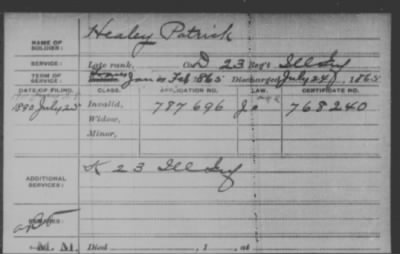 Healey Patrick
NAME OF SOLDIER:
SERVICE: Late rank, Co. D 23 Reg't Ill Inf
TERM OF SERVICE: Jan Feb 1865 Discharged July 24, 1865
DATE OF FILING. CLASS. APPLICATION NO. LAW. CERTIFICATE NO.
1890 July 25 Invalid, 787696 768240
Widow,
Minor,
ADDITIONAL SERVICES: K 23 Ill Inf
REMARKS:
Died , 1 , at